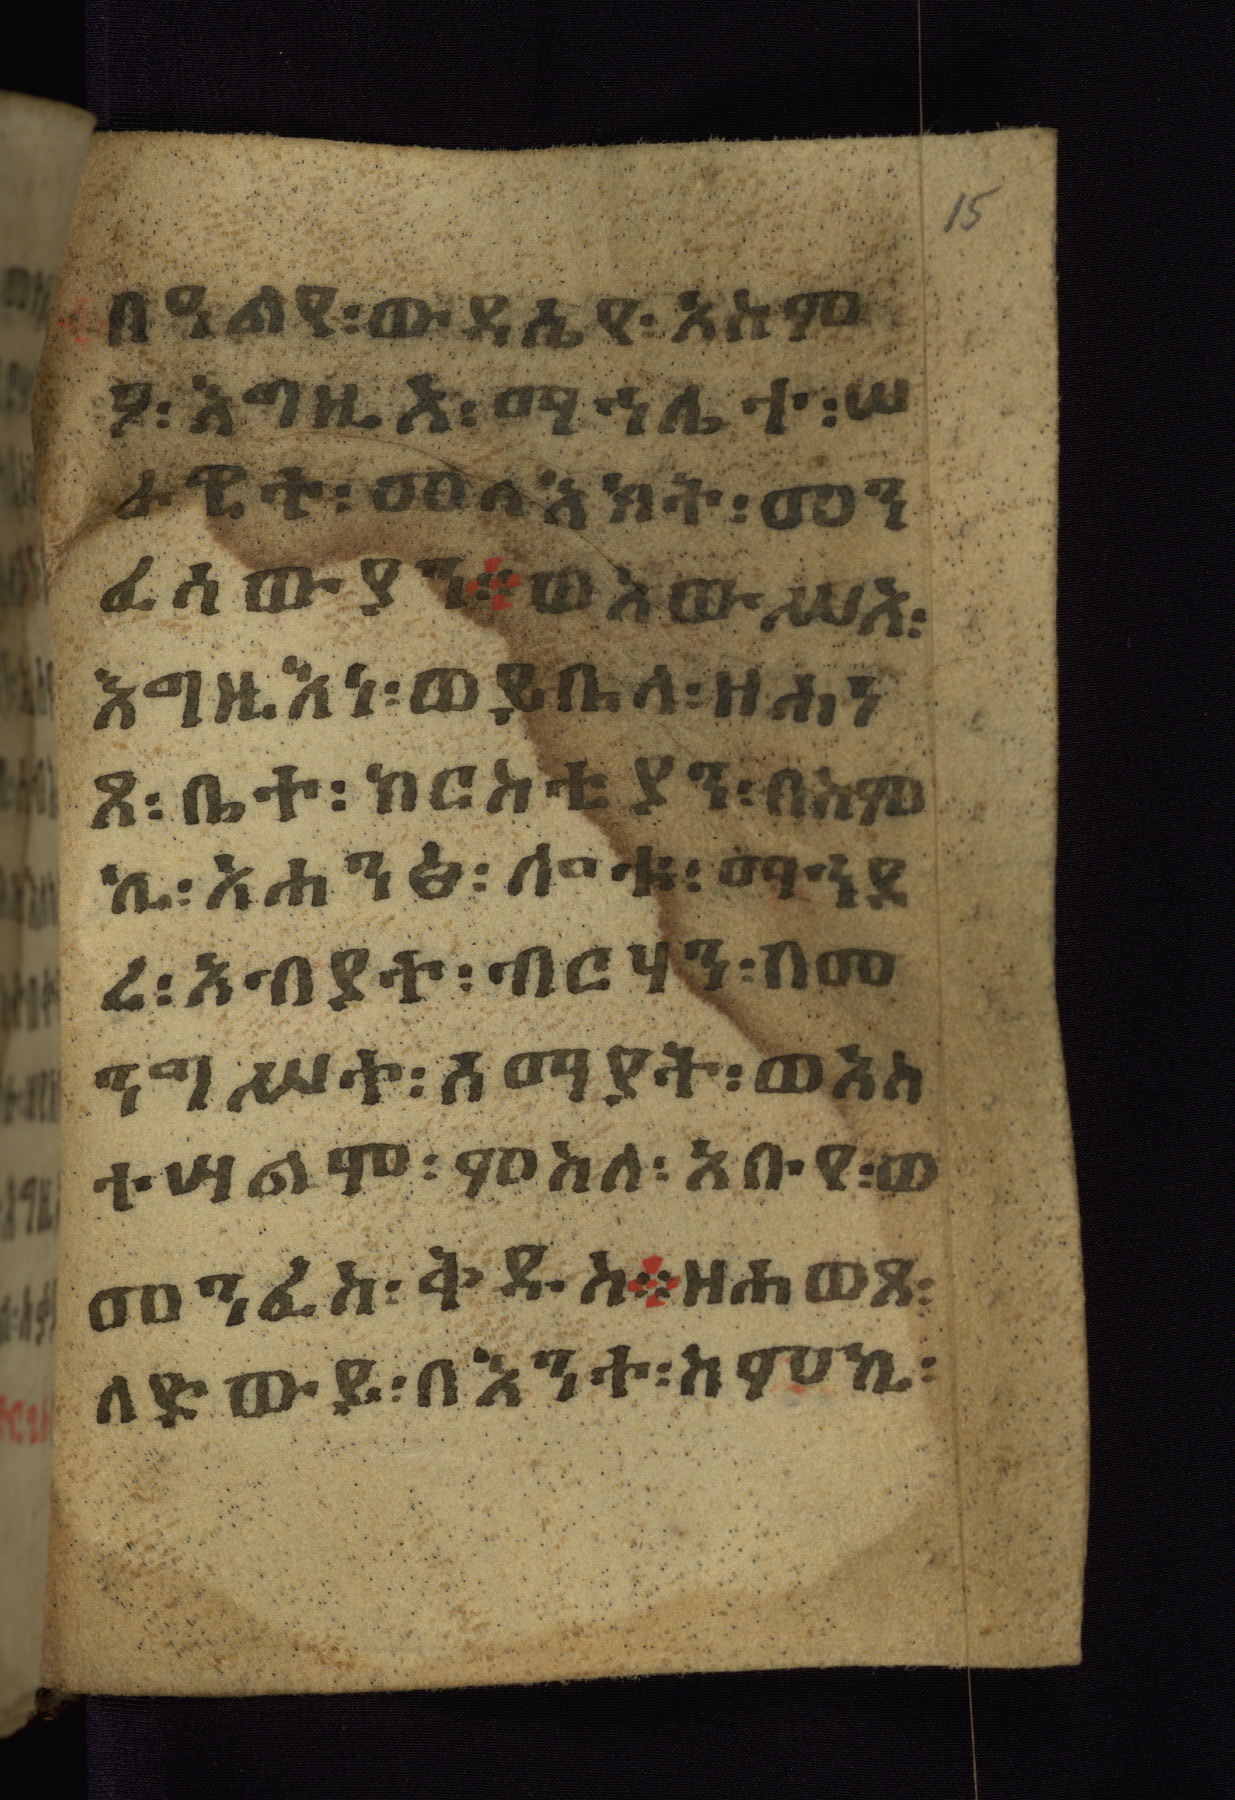 15
በዓልየ፡ውዳሴየ፡እስመ
ኃ፡እግዚእ፡ማኅሌተ፡ሠ
ራዊተ፡መላእክት፡መን
ፈሳውያን፨ወአውሥአ፡
እግዚእነ፡ወይቤላ፡ዘሐነ
ጸ፡ቤተ፡ክርስቲያን፡በስም
ኪ፡አሐንፅ፡ሎቱ፡ማኅደ
ረ፡እብያተ፡ብርሃን፡በመ
ንግሥተ፡ሰማያት፡ወእስ
ተሣልሞ፡ምስለ፡አቡየ፡ወ
መንፈስ፡ቅዱስ፨ዘሐወጸ፡
ለድውይ፡በእንተ፡ስምኪ፡